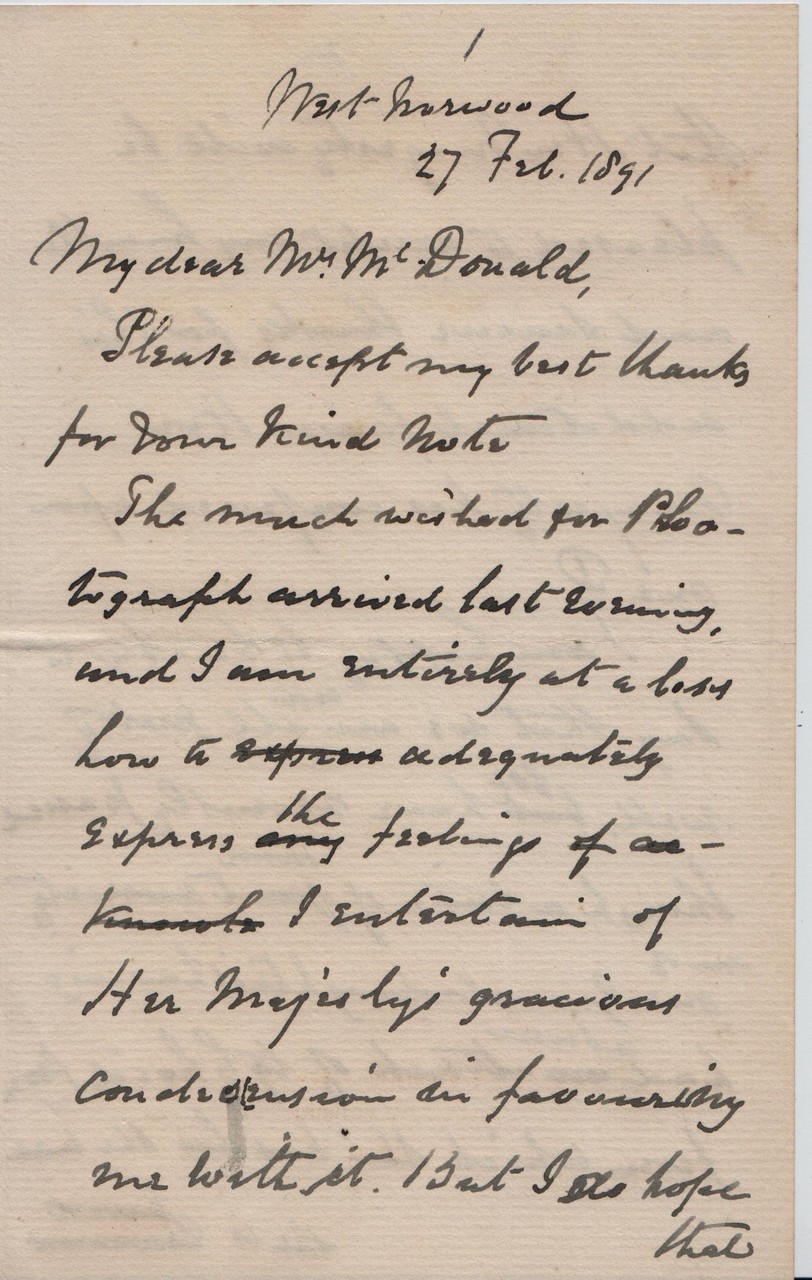 1
West Norwood
27 Feb. 1891
My dear Mrs. Mc.Donald,
Please accept my best thanks
for your kind note
The much wished for Pho-
tograph arrived last evening,
and I am entirely at a loss
how to express adequately
express any the feelings of ac-
knowle I entertain of
Her Majesty's gracious
condecension in favouring
me with it. But I do hope
that